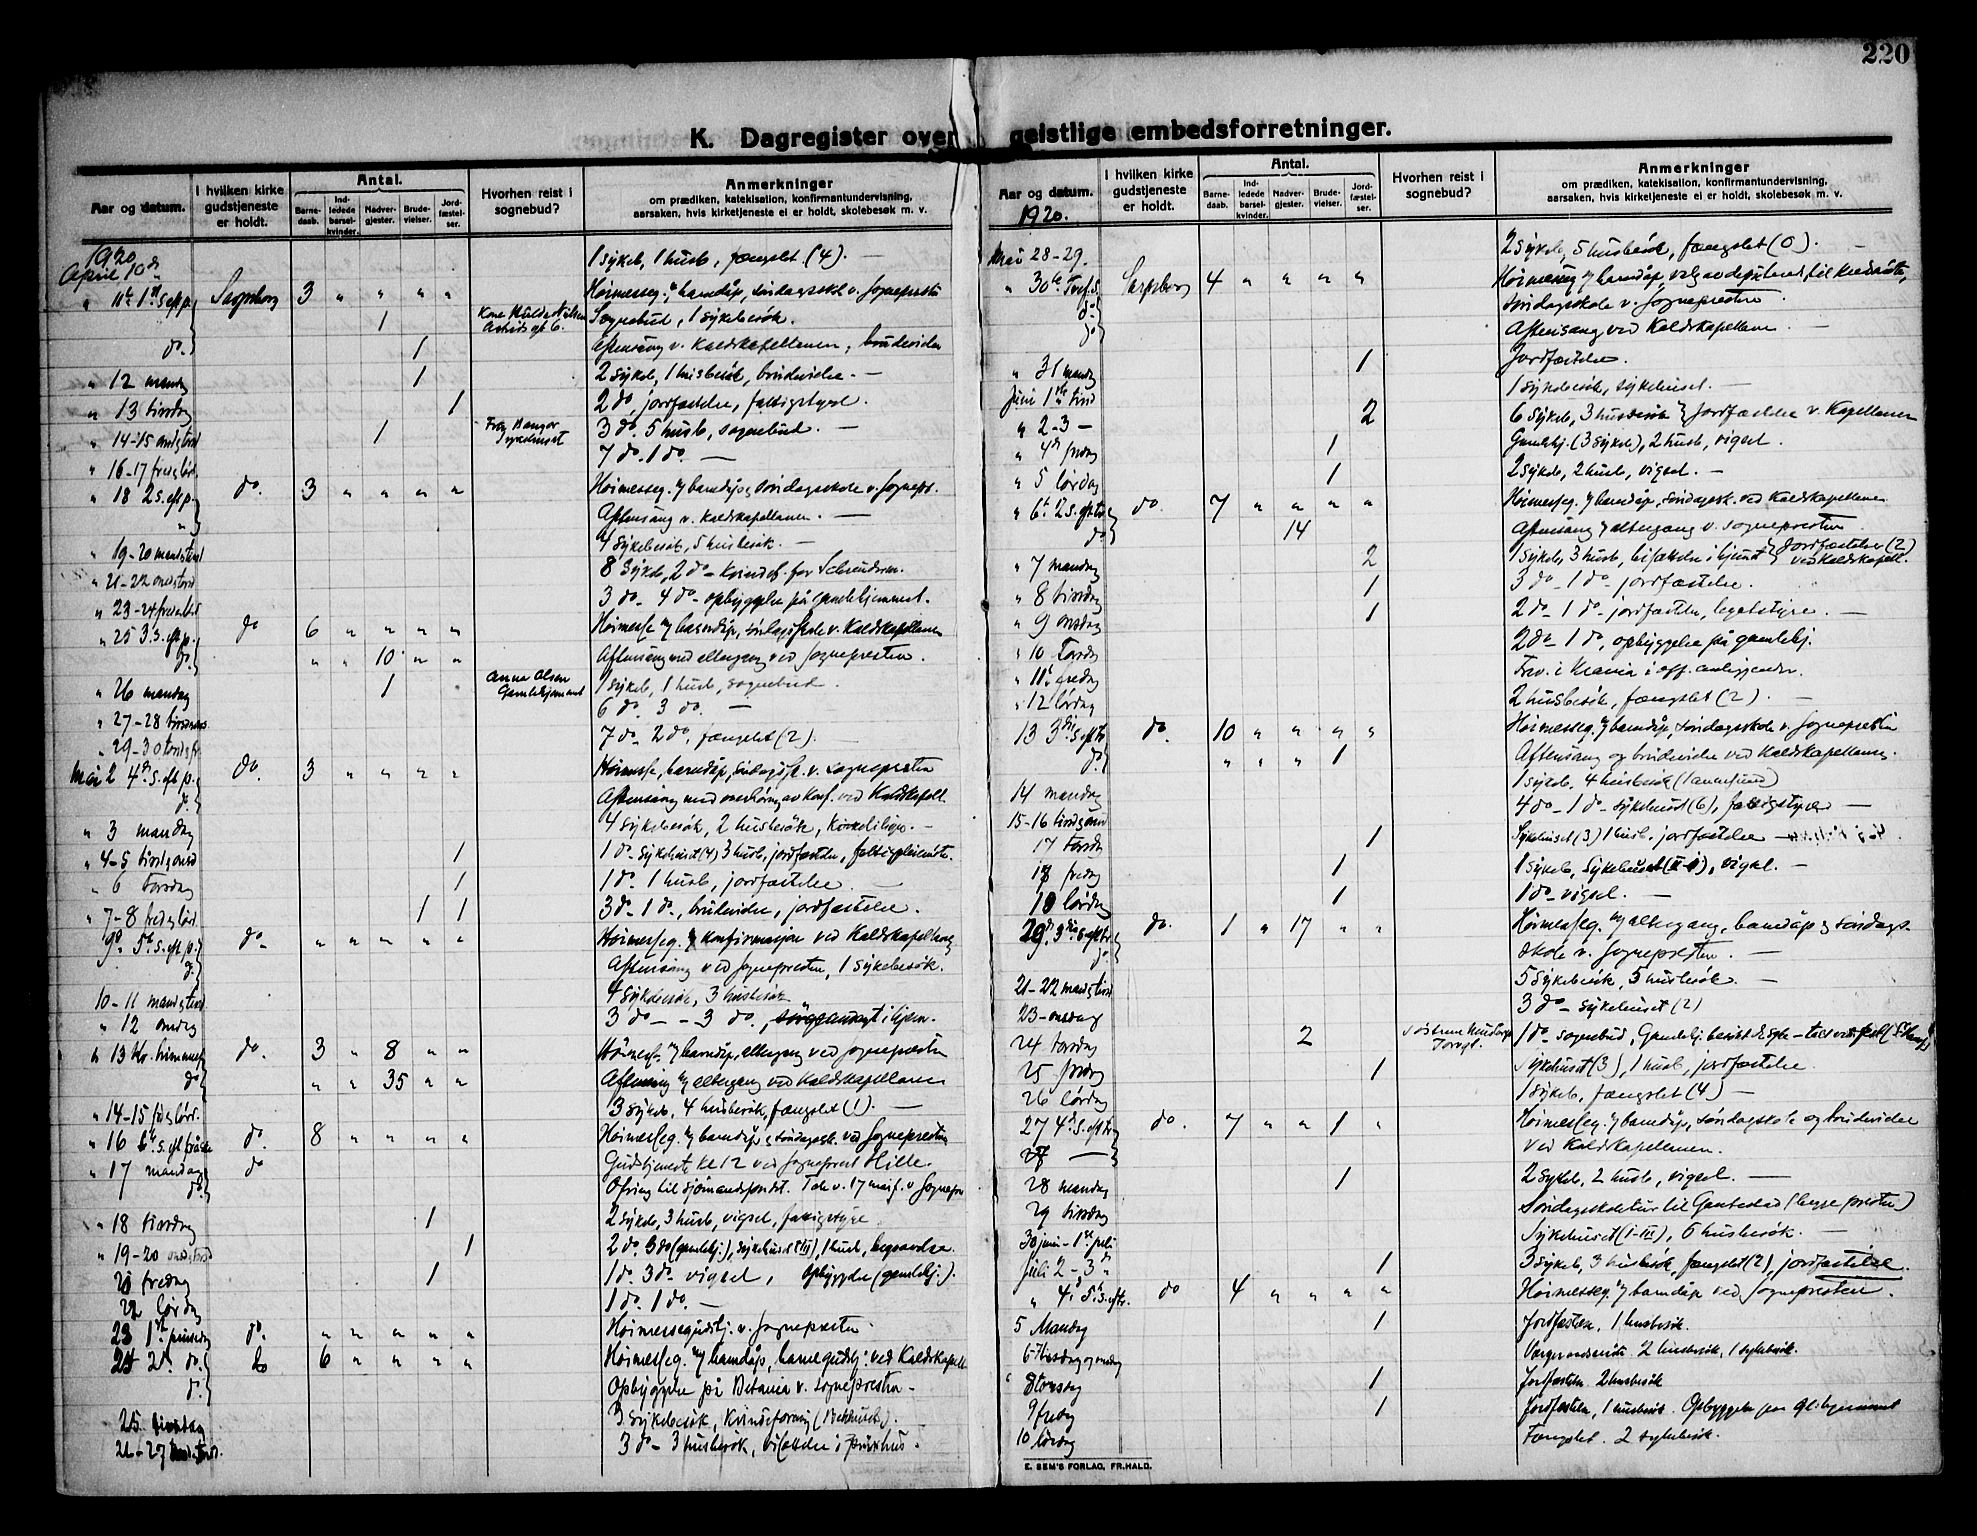 220
K. Dagregister over geistlige embedsforretninger.
Aar og datum.
I hvilken kirke gudstjeneste er holdt.
Antal.
Barnedaab.
Indledede barselkvinder.
Nadvergjester.
Brudevielser.
Jordfæstelser.
Hvorhen reist i sognebud?
Anmerkninger
om prædiken, katekisation, konfirmantundervisning,
aarsaken, hvis kirketjeneste ei er holdt, skolebesøk m. v.
1920
April 10de 1 sykeb, 1 husb, fængslet (4). —
" 11te 1ste s. eft. p. Sarpsborg 3 " " " " Høimesseg. m/ barndåp, søndagsskole v. Sognepresten
1 Sognebud, 1 sykebesøk.
do. 1 Aftensang v. Kaldskapellanen, brudevielse
" 12 mandag 1 2 sykeb, 1 husbesøk, brudevielse. —
" 13 tirsdag 1 2 do, jordfæstelse, fattigstyre. —
" 14-15 onsd. tors 1 Sykehuset 3 do. 5 husb, sognebud. —
" 16-17 fred. lør. 7 do. 1 do. —
" 18 2 s. eft. p. do. 3 " " " " Høimesseg. m/ barndåp og søndagsskole v. Sognepr.
" Aftensang v. Kaldskapellanen. —
" 19-20 mand. tirsd 4 sykebesøk, 5 husbesøk. —
" 21-22 onsd. torsd 8 sykeb, 2 do —
" 23-24 fred. lørd 3 do — 4 do — opbyggelse på gamlehjemmet.
" 25 3 s. eft. p. do 6 " " " " Høimesse m/ barndåp, søndagsskole v. Kaldskapellanen
do. " " 10 " " Aftensang med altergang ved Sognepresten.
" 26 mandag 1 Anna Olsen Gamlehjemmet 1 sykeb, 1 husb, sognebud.
" 27-28 tirsd. ons 6 do. 3 do. —
" 29-30 torsd. fr. 7 do — 2 do, fængslet (2).
Mai 2 4de s. eft. p. do. 3 " " " " Høimesse, barndåp, søndagssk. v. Sognepresten
do Aftensang med overhøring av konf. ved Kaldskapell.
" 3 mandag 4 sykebesøk, 2 husbesøk, —
" 4-5 tirsd. onsd 1 1 do — sykehuset (4) 3 husb, jordfæstelse,
" 6 torsdag 1 1 do. 1 husb, jordfæstelse. —
" 7-8 fred. lørd. 1 1 3 do — 1 do —, brudevielse, jordfæstelse.
9de 5te s. eft. p. do — " " " " " Høimesseg. m/ konfirmasjon ved Kaldskapellanen
do. Aftensang ved Sognepresten, 1 sykebesøk.
10-11 mand. tirsd 4 sykebesøk, 3 husbesøk
" 12 onsdag 3 do — — 3 do.,
" 13 Kr. himmelf do. 3 " 8 " " Høimesse m/ barndåp, altergang ved Sognepresten
do " " 35 " " Aftensang m/ altergang ved Kaldskapellanen
" 14-15 fre. lørd. 3 sykeb, 4 husbesøk, fængslet (1). —
" 16 6te s. eft. påske do. 8 " " " " Høimesseg. m/ barndåp og søndagssk. ved Sognepresten
" 17 mandag do Gudstjeneste kl 12 ved Sogneprest Hille.
do. Ofring til sjømandsfondet. Tale v. 17 maif. v Sognepr
" 18 tirsdag 1 2 sykeb, 3 husb, vigsel, fattigstyre
" 19-20 onsd. torsd 1 2 do. 3 do (gamlehj.), sykehuset (III), 1 husb, begravelse.
21 fredag 1 1 do. 3 do. vigsel, opbyggelse (gamlehj.).
22 lørdag 1 do. 1 do. —
23 1ste pinsedag do. " " " " " Høimessegudstj. v. Sognepresten
24 2den do. do 6 " " " " Høimesseg. m/ barndåp, barnegudstj. ved Kaldskapell
do. Opbyggelse på Betania v. Sognepresten —
25. tirsdag 3 sykebesøk, Kvindeforening (Bedehuset).
26-27 onsd. torsd. 3 do — 3 husbesøk,
Aar og datum.
1920.
I hvilken kirke gudstjeneste er holdt.
Antal.
Barnedaab.
Indledede barselkvinder.
Nadvergjester.
Brudevielser.
Jordfæstelser.
Hvorhen reist i sognebud?
Anmerkninger
om prædiken, katekisation, konfirmantundervisning,
aarsaken, hvis kirketjeneste ei er holdt, skolebesøk m. v.
Mai 28-29. 2 sykeb, 5 husbesøk, fængslet (0). —
" 30te Tref. s. Sarpsborg 4 " " " " Høimesseg m/ barndåp, valg av deputerede til
do. søndagsskole v. Sognepresten —
do Aftensang ved Kaldskapellanen —
" 31 mandag 1 Jordfæstelse.
Juni 1ste tirsd 1 sykebesøk, sykehuset. —
" 2-3 — 2 6 sykeb, 3 husbesøk, jordfæstelse v. Kapellanen
" 4de fredag 1 Gamlehj. (3 sykeb), 2 husb, vigsel.
" 5 lørdag 1 2 sykeb, 2 husb, vigsel. —
" 6te 2 s. eft. tr. do. 7 " " " " Høimesseg. m/ barndåp, søndagssk. ved Kaldskapellanen
do 14 Aftensang m/ altergang v. Sognepresten
" 7 mandag 2 1 sykeb, 3 husb, jordfæstelser (2) ved Kaldskapell.
" 8 tirsdag 1 3 do — 1 do — jordfæstelse.
" 9 onsdag 1 2 do — 1 do — jordfæstelse, legatstyre. —
" 10 torsdag 2 do — 1 do, opbyggelse på gamlehj.
" 11te fredag i off. anliggender.
" 12 lørdag 2 husbesøk, fængslet (2). —
13 3die s. eft. tr do. 10 " " " " Høimesseg. m/ barndåp, søndagsskole v. Sognepresten
do. " " " 1 Aftensang og brudevielse ved Kaldskapellanen.
14 mandag 1 sykeb. 4 husbesøk
15-16 tirsd. onsd 4 do — 1 do — sykehuset (6), fattigstyre —
17 torsdag 1 Sykehuset (3) 1 husb, jordfæstelse —
18 fredag 1 1 sykeb, Sykehuset (II-II), vigsel. —
19 lørdag 1 1 do — vigsel. —
20de 3die s. eft. tr do. 1 " 17 " " Høimesseg. m/ altergang, barndåp og søndags-
do skole v. Sognepresten. —
21-22 mand. tirsd 5 sykebesøk, 5 husbesøk —
23 — onsdag 3 do — sykehuset (2)
24 torsdag 2 1 do — sognebud, Gamlehj.
25 fredag 1 Sykehuset (3), 1 husb, jordfæstelse.
26 lørdag 1 sykeb, fængslet (4) —
27 4de s. eft. tr. do. 7 " " 1 " Høimesseg. m/ barndåp, søndagsskole og brudevielse
27 — ved Kaldskapellanen.
28 mandag 1 2 sykeb, 2 husb, vigsel. —
29 tirsdag Søndagsskoletur til (begge prester)
30 juni — 1ste juli Sykehuset (I-III), 6 husbesøk. —
Juli 2-3 1 3 sykeb, 3 husbesøk, fængslet (2), jordfæstelse.
" 4de 5te s. e. tr. do 4 " " " " Høimesseg. m/ barndåp ved Sognepresten.
5 Mandag 1 Jordfæstelse, 1 husbesøk.
6-7 tirsdag og onsdag Vergeraadsmøte. 2 husbesøk, 1 sykebesøk.
" 8 torsdag 1 Jordfæstelse. 2 husbesøk
9 fredag 1 Jordfæstelse, 1 husbesøk. Opbyggelse paa
10 lørdag Fængslet. 2 sykebesøk.
E. SEM'S FORLAG, FR.HALD.